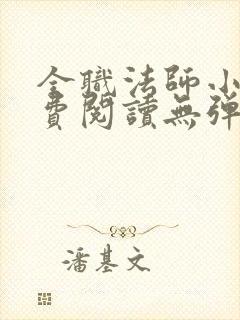 全職法師小
費閱讀無彈
潘基文